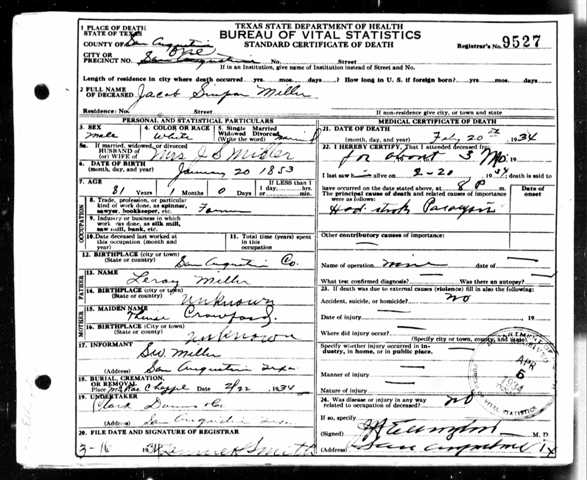 TEXAS STATE DEPARTMENT OF HEALTH
BUREAU OF VITAL STATISTICS
STANDARD CERTIFICATE OF DEATH
Registrar's No. 9527
1 PLACE OF DEATH
STATE OF TEXAS
COUNTY OF San Augustine
CITY OR PRECINCT NO. One San Augustine Street
If in an Institution, give name of Institution instead of Street and No.
Length of residence in city where death occurred yrs. mos. days. ? How long in U. S. if foreign born? yrs. mos. days.
2 FULL NAME OF DECEASED Jacob Simpson Miller
Residence: No. Street
If non-residence give city, or town and state
PERSONAL AND STATISTICAL PARTICULARS
3. SEX male
4. COLOR OR RACE White
5. Single Married Widowed Divorced (Write the word) married
5a. If married, widowed, or divorced HUSBAND OF (or) WIFE OF Mrs J S Miller
6. DATE OF BIRTH (month, day, and year) January 20 1853
7. AGE 81 Years 1 Months 0 Days If LESS than 1 day, hrs. or min.
OCCUPATION
8. Trade, profession, or particular kind of work done, as spinner, sawyer, bookkeeper, etc. Farmer
9. Industry or business in which work was done, as silk mill, saw mill, bank, etc.
10. Date deceased last worked at this occupation (month and year)
11. Total time (years) spent in this occupation
12. BIRTHPLACE (city or town) (State or country) San Augustine Co.
FATHER
13. NAME Leroy Miller
14. BIRTHPLACE (city or town) (State or country) Unknown
MOTHER
15. MAIDEN NAME Crawford
16. BIRTHPLACE (city or town) (State or country) Unknown
17. INFORMANT Geo. Miller
(Address) San Augustine Texas
18. BURIAL, CREMATION, OR REMOVAL
Place McRae Chapel Date 2/22 1934
19. UNDERTAKER Clark Downs Co
(Address) San Augustine
20. FILE DATE AND SIGNATURE OF REGISTRAR
3-16 1934 Smith
MEDICAL CERTIFICATE OF DEATH
21. DATE OF DEATH
(month, day, and year) Feby 20th 1934
22. I HEREBY CERTIFY, That I attended deceased from
for about 3 Mo. 19
I last saw h alive on 2-20 1934 death is said to
have occurred on the date stated above, at 8 P m.
The principal cause of death and related causes of importance were as follows:
Date of onset
Had stroke Paralysis
Other contributory causes of importance:
Name of operation none Date of
What test confirmed diagnosis? Was there an autopsy?
23. If death was due to external causes (violence) fill in also the following:
Accident, suicide, or homicide? no
Date of injury 19
Where did injury occur?
(Specify city or town, county, and state)
Specify whether injury occurred in industry, in home, or in public place.
Manner of injury
Nature of injury
24. Was disease or injury in any way related to occupation of deceased? no
If so, specify
(Signed) M. D.
(Address) San Augustine Tx
APR
6
1934
VITAL STATISTICS